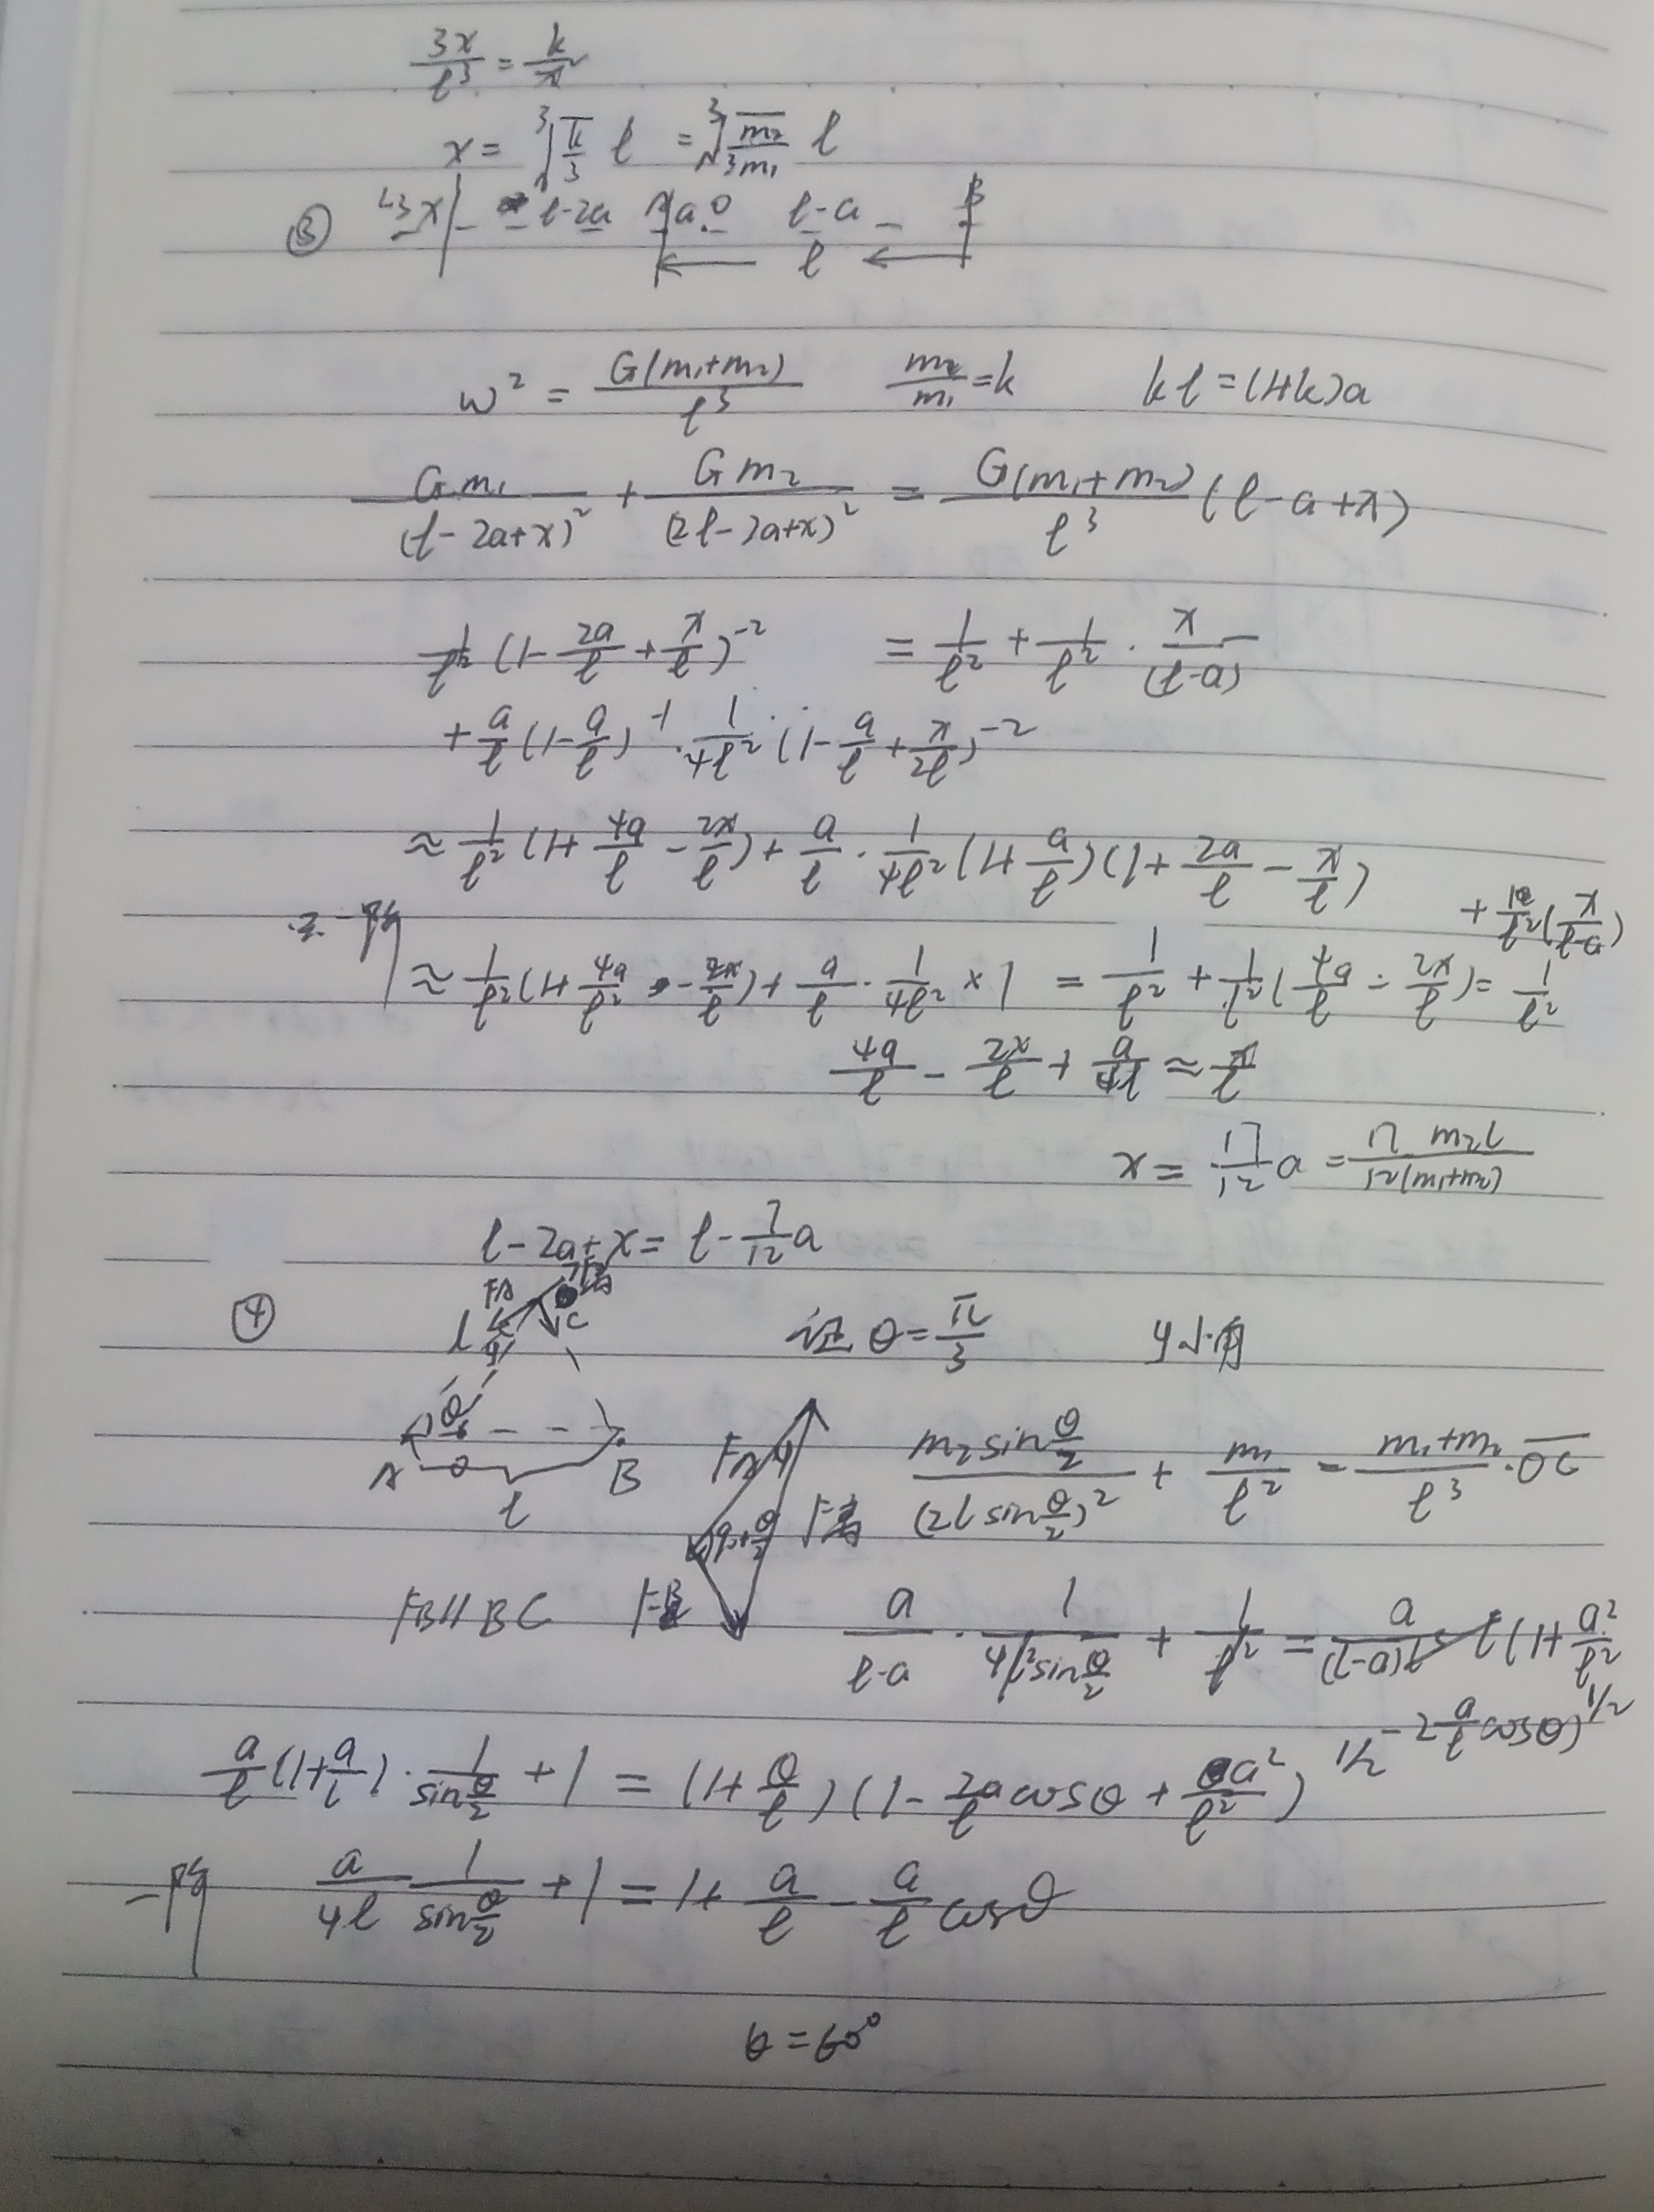 3x/ℓ³ = k/x²
x = ³√(k/3) ℓ = ³√(m₂/3m₁) ℓ
③ L3 x ℓ-2a A a O ℓ-a B
ℓ
w² = G(m₁+m₂)/ℓ³ m₂/m₁ = k kℓ = (1+k)a
Gm₁/(ℓ-2a+x)² + Gm₂/(2ℓ-2a+x)² = G(m₁+m₂)/ℓ³ (ℓ-a+x)
1/ℓ² (1-2a/ℓ+x/ℓ)⁻² = 1/ℓ² + 1/ℓ² · x/(ℓ-a)
+ a/ℓ (1-a/ℓ)⁻¹ · 1/4ℓ² (1-a/ℓ+x/2ℓ)⁻²
≈ 1/ℓ² (1+4a/ℓ-2x/ℓ) + a/ℓ · 1/4ℓ² (1+a/ℓ)(1+2a/ℓ-x/ℓ)
+ 1/ℓ² (x/ℓ-a)
一阶 ≈ 1/ℓ² (1+4a/ℓ² - 2x/ℓ) + a/ℓ · 1/4ℓ² × 1 = 1/ℓ² + 1/ℓ² (4a/ℓ - 2x/ℓ) = 1/ℓ²
4a/ℓ - 2x/ℓ + a/4ℓ ≈ x/ℓ
x = 17/12 a = 17 m₂ℓ/12(m₁+m₂)
ℓ-2a+x = ℓ - 7/12 a
④ FA C ℓ φ 证 θ = π/3 φ小角
θ
A O B ℓ
FA φ φ+θ/2 m₂sinθ/2/(2ℓsinθ/2)² + m₁/ℓ² = m₁+m₂/ℓ³ · OC
FB∥BC FB a/ℓ-a · 1/4ℓ²sinθ/2 + 1/ℓ² = a/(ℓ-a)ℓ³ ℓ(1+a²/ℓ²
-2a/ℓ cosθ)^1/2
a/ℓ (1+a/ℓ) · 1/sinθ/2 + 1 = (1+θ/ℓ)(1-2a/ℓ cosθ + a²/ℓ²)^1/2
一阶 a/4ℓ 1/sinθ/2 + 1 = 1 + a/ℓ - a/ℓ cosθ
θ = 60°